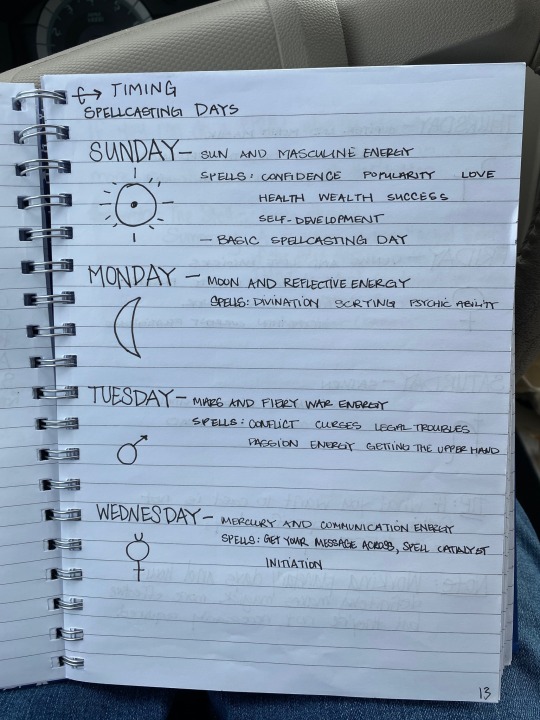 → TIMING
SPELLCASTING DAYS
SUNDAY— SUN AND MASCULINE ENERGY
SPELLS: CONFIDENCE POPULARITY LOVE
HEALTH WEALTH SUCCESS
SELF-DEVELOPMENT
— BASIC SPELLCASTING DAY
MONDAY — MOON AND REFLECTIVE ENERGY
SPELLS: DIVINATION SCRYING PSYCHIC ABILITY
TUESDAY— MARS AND FIERY WAR ENERGY
SPELLS: CONFLICT CURSES LEGAL TROUBLES
PASSION ENERGY GETTING THE UPPER HAND
WEDNESDAY— MERCURY AND COMMUNICATION ENERGY
SPELLS: GET YOUR MESSAGE ACROSS, SPELL CATALYST
INITIATION
13